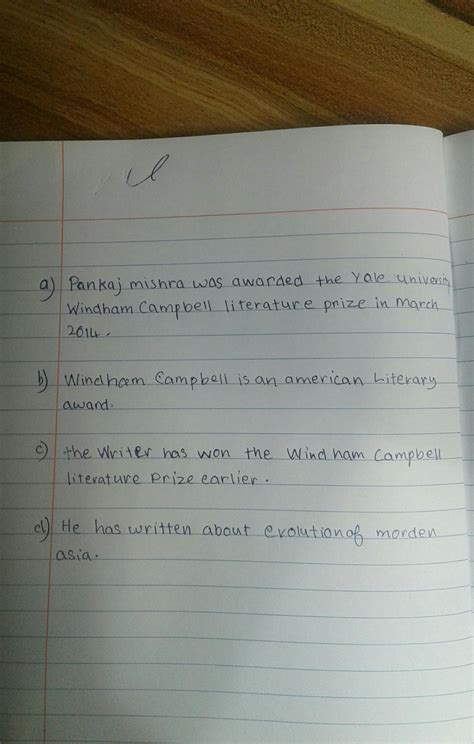 a) Pankaj mishra was awarded the Yale university
Windham Campbell literature prize in March
2014.
b) Windham Campbell is an american Literary
award.
c) the Writer has won the Windham Campbell
literature Prize earlier.
d) He has written about evolution of morden
asia.